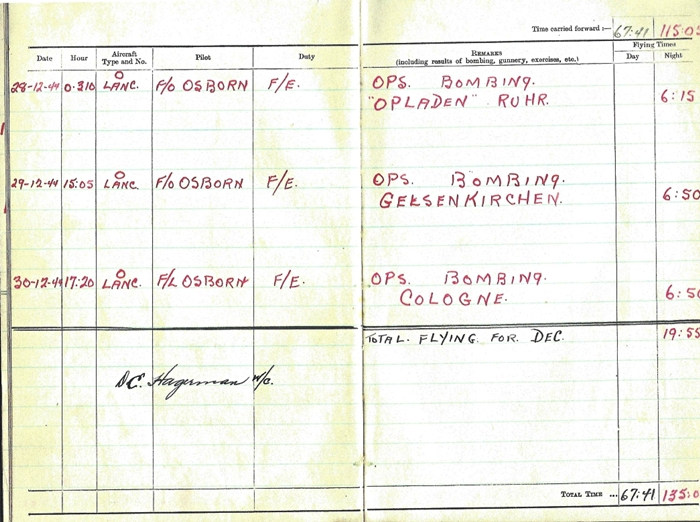 Time carried forward :— 67:41 115:05
Date Hour Aircraft Type and No. Pilot Duty REMARKS (including results of bombing, gunnery, exercises, etc.) Flying Times Day Night
O
28-12-44 0310 LANC. F/O OSBORN F/E. OPS. BOMBING.
"OPLADEN" RUHR. 6:15
O
29-12-44 15:05 LANC. F/O OSBORN F/E. OPS. BOMBING.
GELSENKIRCHEN. 6:50
O
30-12-44 17:20 LANC. F/L OSBORN F/E. OPS. BOMBING.
COLOGNE. 6:50
TOTAL. FLYING. FOR. DEC. 19:55
D.C. Hagerman W/C.
TOTAL TIME ... 67:41 135:0